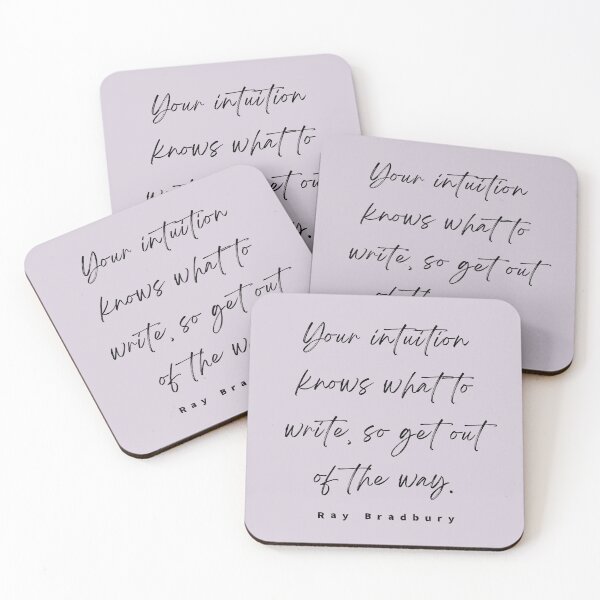 Your intuition
knows what to
get out
Your intuition
knows what to
write, so get out
of the
Your intuition
knows what to
write, so get out
of the
Ray
Your intuition
knows what to
write, so get out
of the way.
Ray Bradbury